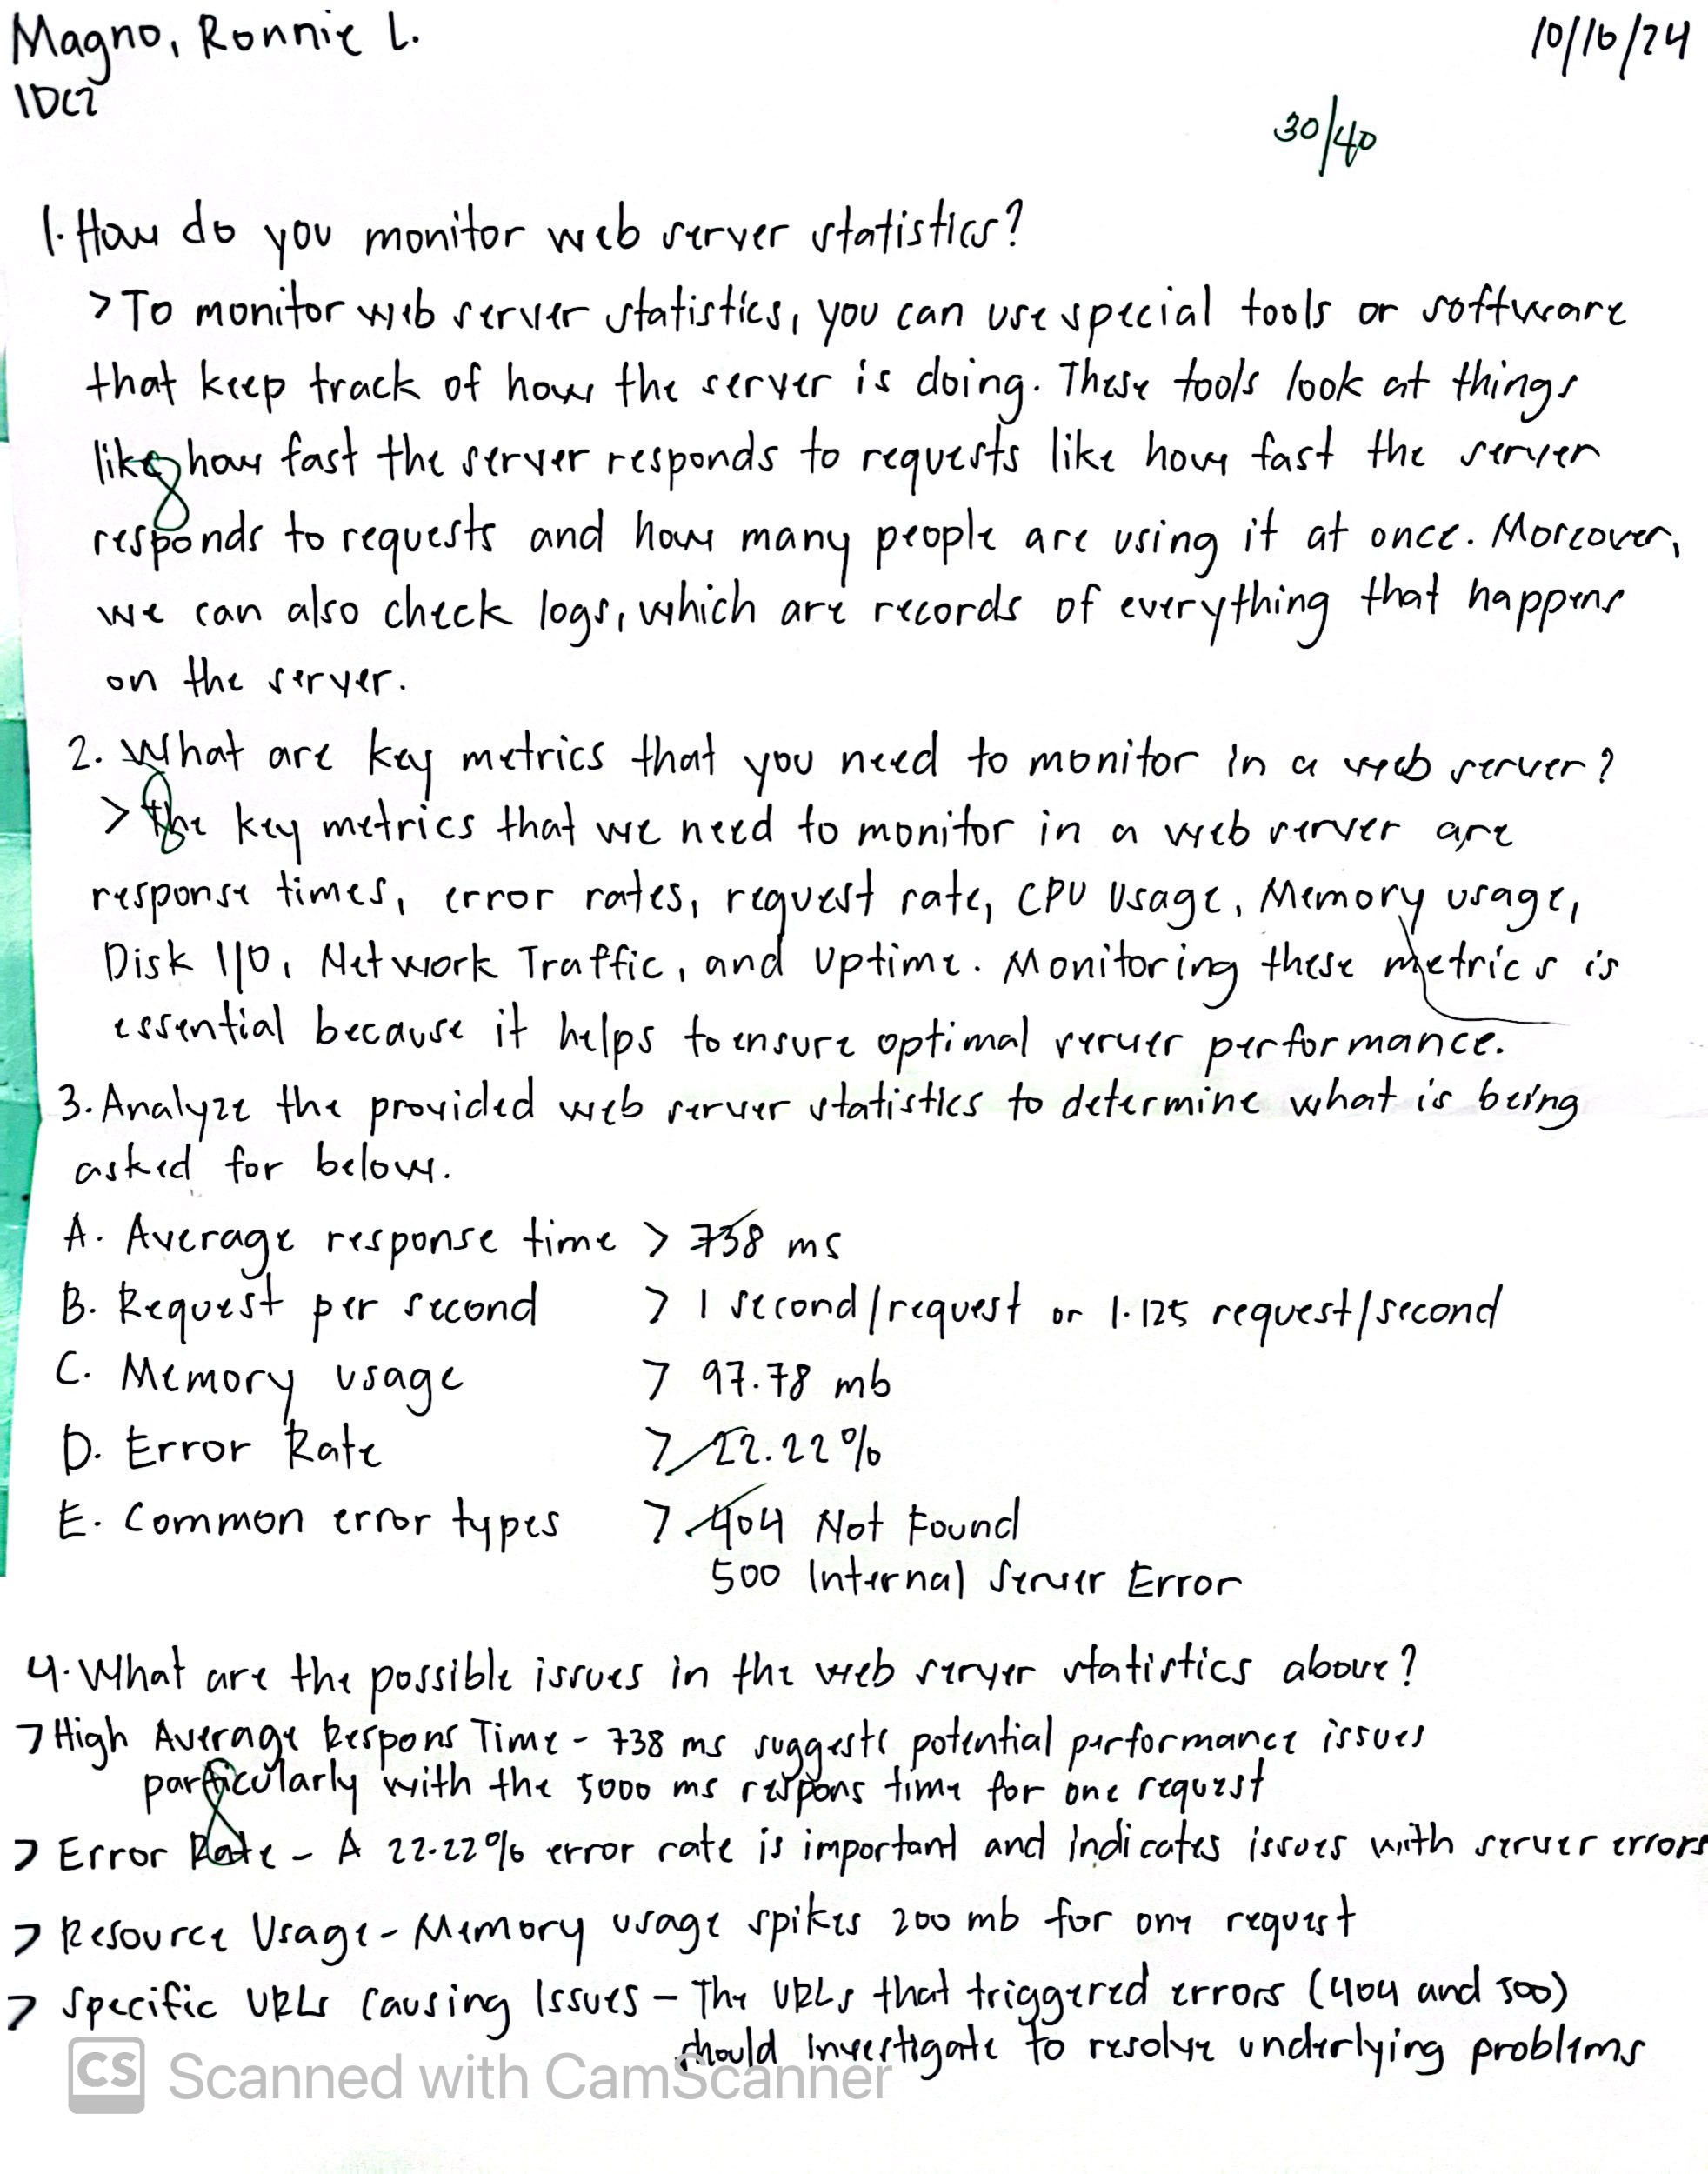 Magno, Ronnie L.
10/16/24
1DC2
30/40
1. How do you monitor web server statistics?
> To monitor web server statistics, you can use special tools or software
that keep track of how the server is doing. These tools look at things
like how fast the server responds to requests like how fast the server
responds to requests and how many people are using it at once. Moreover,
we can also check logs, which are records of everything that happens
on the server.
8
2. What are key metrics that you need to monitor in a web server?
> The key metrics that we need to monitor in a web server are
response times, error rates, request rate, CPU Usage, Memory usage,
Disk I/O, Network Traffic, and Uptime. Monitoring these metrics is
essential because it helps to ensure optimal server performance.
8
3. Analyze the provided web server statistics to determine what is being
asked for below.
A. Average response time > 738 ms
B. Request per second > 1 second/request or 1.125 request/second
C. Memory usage > 97.78 mb
D. Error Rate > 22.22%
E. Common error types > 404 Not Found
500 Internal Server Error
4. What are the possible issues in the web server statistics above?
> High Average Respons Time - 738 ms suggests potential performance issues
particularly with the 5000 ms respons time for one request
8
> Error Rate - A 22.22% error rate is important and indicates issues with server errors
> Resource Usage - Memory usage spikes 200 mb for one request
> Specific URLs Causing Issues - The URLs that triggered errors (404 and 500)
should Investigate to resolve underlying problems
CS Scanned with CamScanner